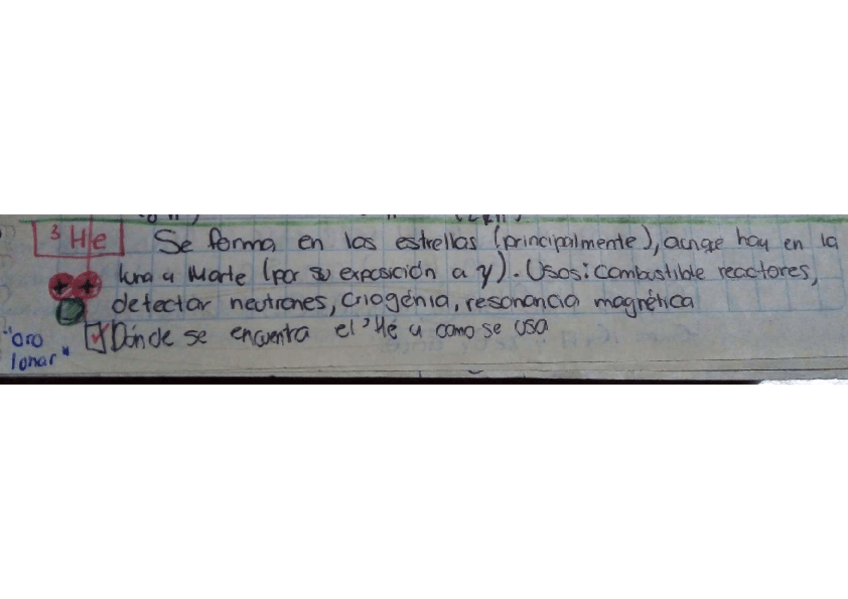 ³He Se forma en las estrellas (principalmente), aunque hay en la
luna y Marte (por su exposición a γ). Usos: combustible reactores,
detectar neutrones, criogénia, resonancia magnética
"oro
lunar"
Dónde se encuentra el ³He y como se usa